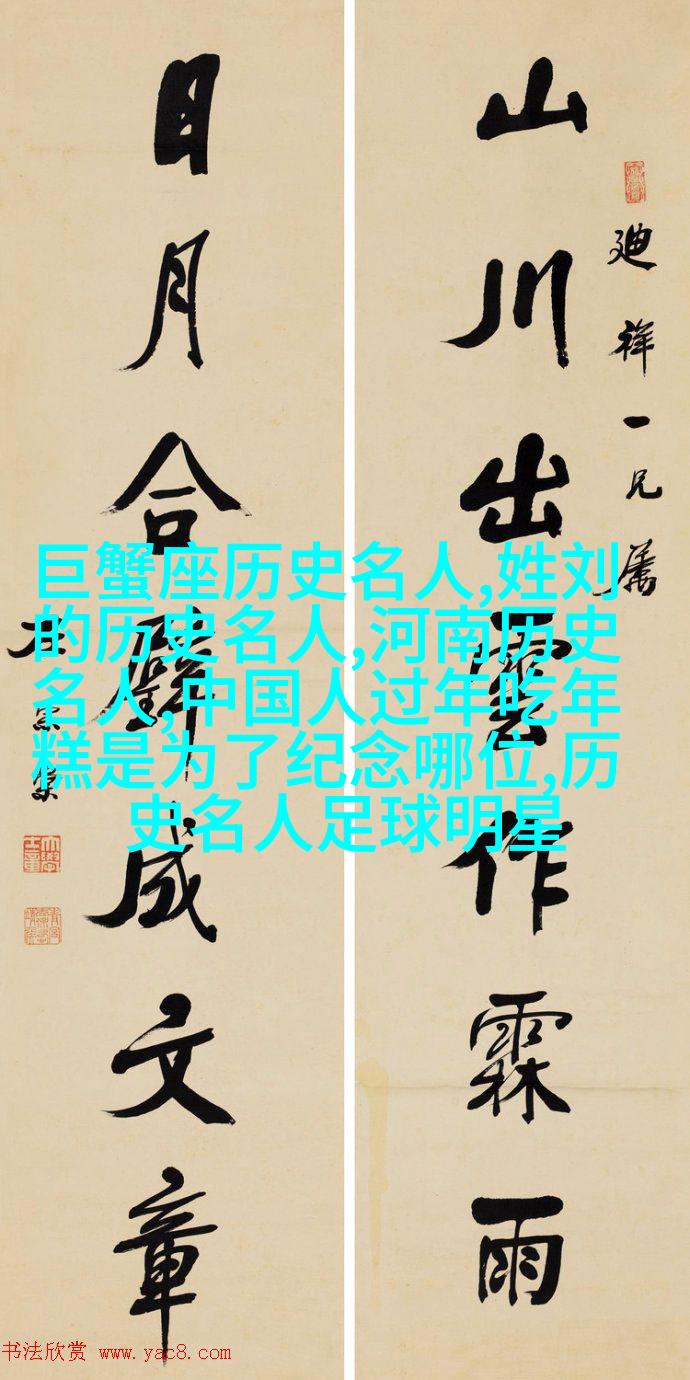 廸祥一兄属
山川出雲作霖雨
日月合璧成文章
左宗棠
巨蟹座历史名人,姓刘
的历史名人,河南历史
名人,中国人过年吃年
糕是为了纪念哪位,历
史名人足球明星
书法欣赏 www.yac8.com